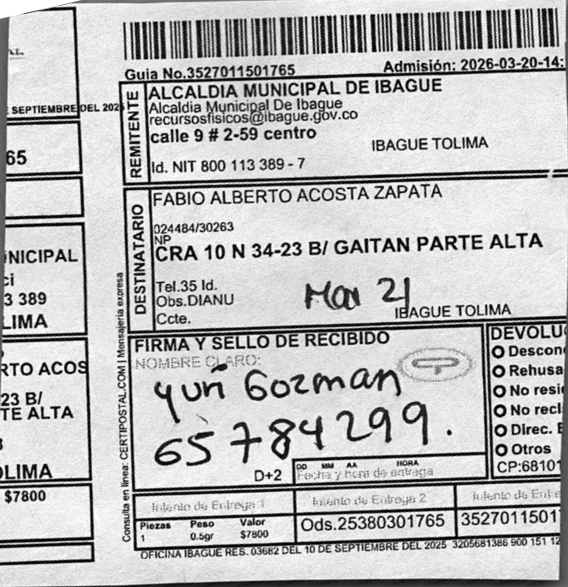 E SEPTIEMBRE DEL 2025
65
NICIPAL
ci
3 389
LIMA
RTO ACOS
23 B/
TE ALTA
OLIMA
$7800
Consulta en línea: CERTIPOSTAL.COM | Mensajería expresa
Guia No.3527011501765
Admisión: 2026-03-20-14:
REMITENTE
ALCALDIA MUNICIPAL DE IBAGUE
Alcaldia Municipal De Ibague
recursosfisicos@ibague.gov.co
calle 9 # 2-59 centro
IBAGUE TOLIMA
Id. NIT 800 113 389 - 7
DESTINATARIO
FABIO ALBERTO ACOSTA ZAPATA
024484/30263
NP
CRA 10 N 34-23 B/ GAITAN PARTE ALTA
Tel.35 Id.
Obs.DIANU
Ccte.
21
IBAGUE TOLIMA
FIRMA Y SELLO DE RECIBIDO
NOMBRE CLARO:
Gozman
65784299.
D+2
DD MM AA HORA
Fecha y hora de entrega
DEVOLU
Descon
Rehusa
No resi
No recl
Direc. E
Otros
CP:68101
Intento de Entrega 1
Intento de Entrega 2
Intento de Entre
Piezas Peso Valor
1 0.5gr $7800
Ods.25380301765
35270115017
OFICINA IBAGUE RES. 03682 DEL 10 DE SEPTIEMBRE DEL 2025 3205681386 900 151 12